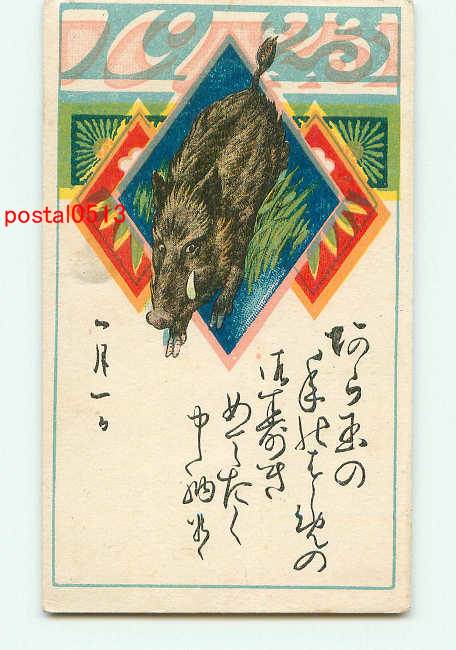 postal0513
阿ら玉の
年のはしめの
御寿き
めてたく
申納め
一月一日